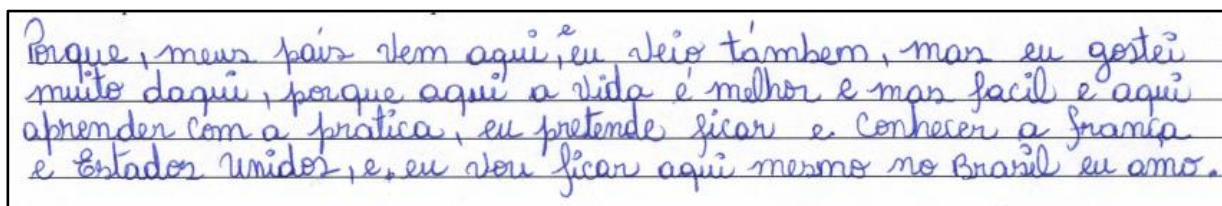 Porque, meus país vem aqui, e eu veio támbem, mas eu gostei
muito daqui, porque aqui a vida é melhor e mas facil e aqui
aprender com a pratica, eu pretende ficar e conhecer a frança
e Estados unidos, e, eu vou ficar aqui mesmo no Brasil eu amo.